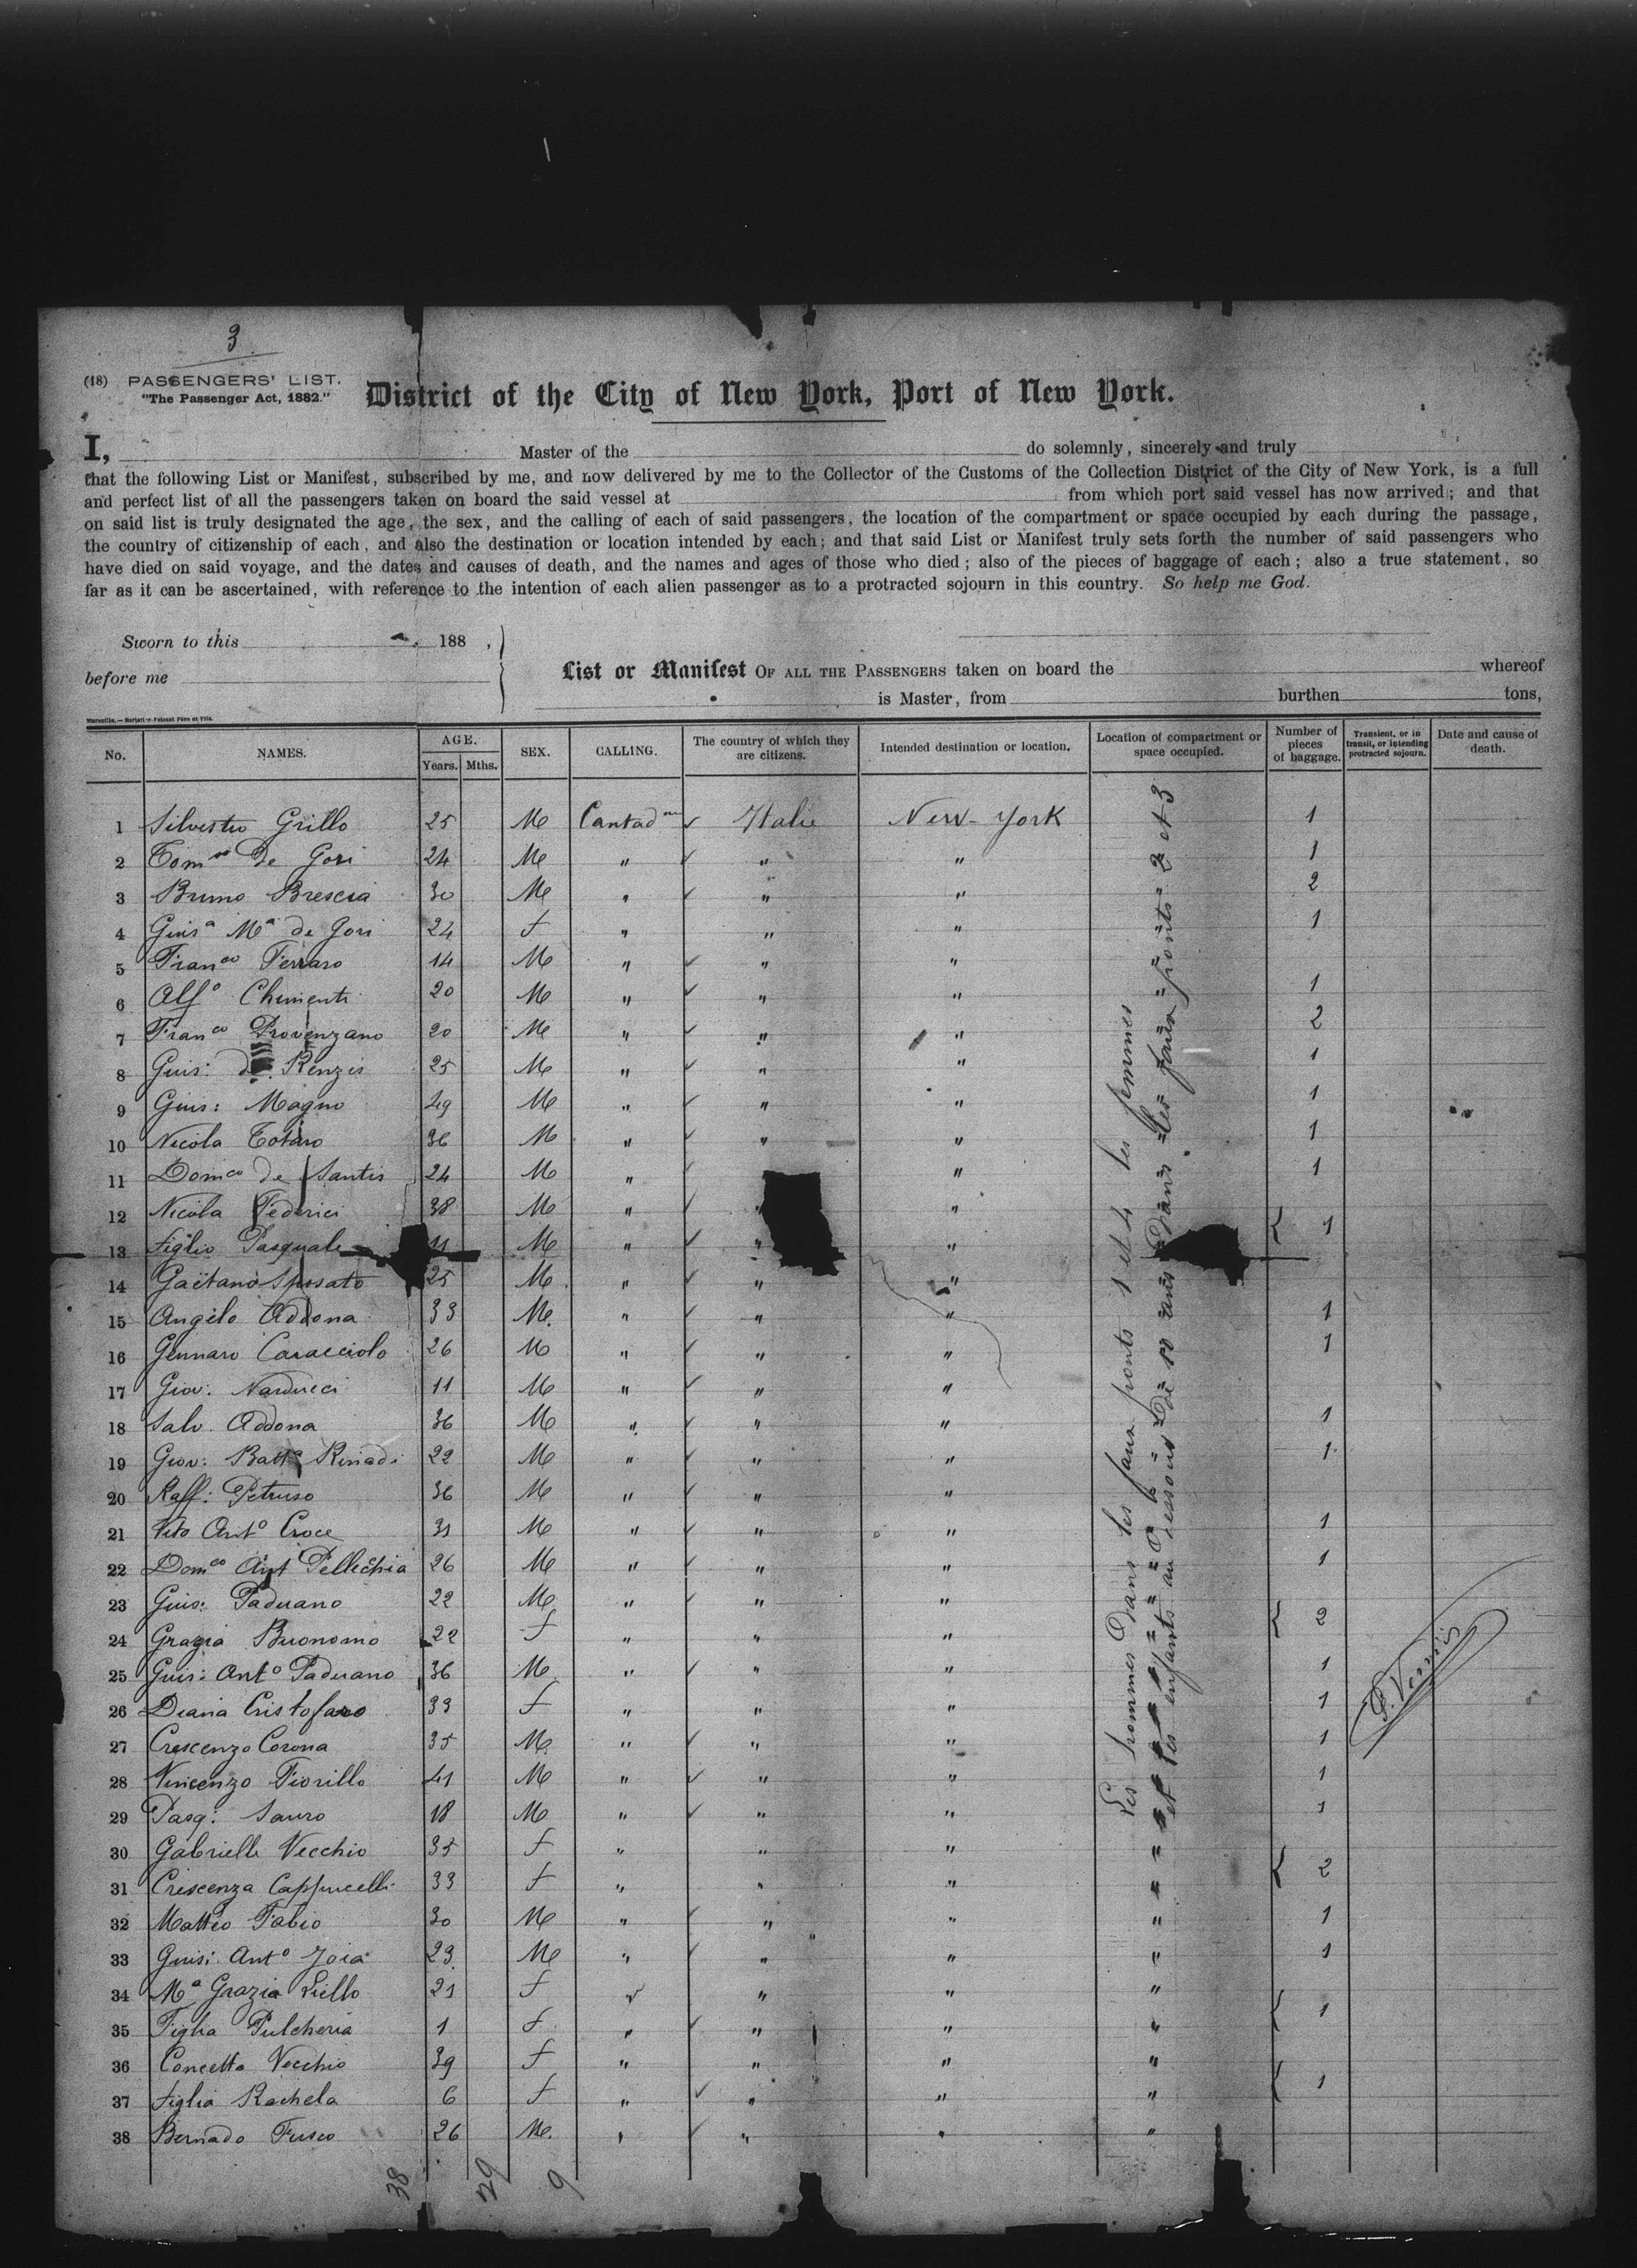 3
(18) PASSENGERS' LIST.
"The Passenger Act, 1882."
District of the City of New York, Port of New York.
I, Master of the do solemnly, sincerely and truly
that the following List or Manifest, subscribed by me, and now delivered by me to the Collector of the Customs of the Collection District of the City of New York, is a full
and perfect list of all the passengers taken on board the said vessel at from which port said vessel has now arrived; and that
on said list is truly designated the age, the sex, and the calling of each of said passengers, the location of the compartment or space occupied by each during the passage,
the country of citizenship of each, and also the destination or location intended by each; and that said List or Manifest truly sets forth the number of said passengers who
have died on said voyage, and the dates and causes of death, and the names and ages of those who died; also of the pieces of baggage of each; also a true statement, so
far as it can be ascertained, with reference to the intention of each alien passenger as to a protracted sojourn in this country. So help me God.
Sworn to this 188 ,
before me
List or Manifest OF ALL THE PASSENGERS taken on board the whereof
is Master, from burthen tons,
No. NAMES. AGE. Years. Mths. SEX. CALLING. The country of which they are citizens. Intended destination or location. Location of compartment or space occupied. Number of pieces of baggage. Transient, or in transit, or intending protracted sojourn. Date and cause of death.
1 Silvestro Grillo 25 M Italie New-York 1
2 Tom.so de Gori 24 M " " " 1
3 Bruno Brescia 30 M " " " 2
4 Gius.a M.a de Gori 24 f " " " 1
5 Fran.co Ferraro 14 M " " "
6 Alf.o Chimenti 20 M " " " 1
7 Fran.co Provenzano 20 M " " " 2
8 Gius: de Renzis 25 M " " " 1
9 Gius: Magno 49 M " " " 1
10 Nicola Totaro 36 M " " " 1
11 Dom.co de Santis 24 M " " 1
12 Nicola Federici 38 M " " "
13 figlio Pasquale 11 M " " " 1
14 Gaëtano Sposato 25 M " " "
15 Angelo Addona 33 M " " " 1
16 Gennaro Caracciolo 26 M " " " 1
17 Giov: Narducci 11 M " " "
18 Salv. Addona 36 M " " " 1
19 Giov: Batt.a Rinadi 22 M " " " 1
20 Raff: Petruso 36 M " " "
21 Vito Ant.o Croce 31 M " " " 1
22 Dom.co Ant Pellechia 26 M " " " 1
23 Gius: Paduano 22 M " " "
24 Grazia Buonomo 22 f " " " 2
25 Gius: Ant.o Paduano 36 M " " " 1
26 Diana Cristofaro 33 f " " " 1
27 Crescenzo Corona 35 M " " " 1
28 Vincenzo Fiorillo 41 M " " " 1
29 Pasq: Sauro 18 M " " " 1
30 Gabriella Vecchio 35 f " " "
31 Crescenza Cappucelli 33 f " " " 2
32 Matteo Fabio 30 M " " " " 1
33 Gius: Ant.o Joia 23 M " " " " 1
34 M.a Grazia Liello 21 f " " " "
35 Figlia Pulcheria 1 f " " " " 1
36 Concetta Vecchio 39 f " " " "
37 figlia Rachela 6 f " " " " 1
38 Bernado Fusco 26 M " " " "
Les hommes dans les faux ponts 1 et 4 les femmes
dans les faux ponts 2 et 3
et les enfants au dessous de 10 ans
38 29 9